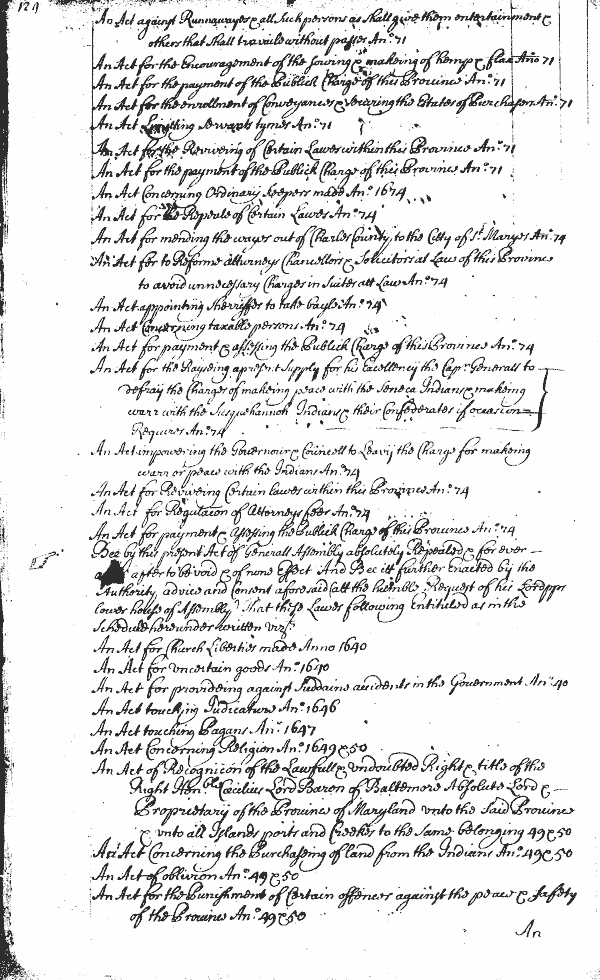 124
An Act against Runnawayes & all such persons as shall give them entertainment &
others that shall travaile without passes Ano 71
An Act for the Encouragement of the sowing & makeing of hemp & flax Ano 71
An Act for the payment of the Publick Charge of this Province Ano 71
An Act for the enrollment of Conveyances & secureing the Estates of Purchasers Ano 71
An Act Limitting servants tymes Ano 71
An Act for the Reviveing of Certain Lawes within this Province Ano 71
An Act for the payment of the Publick Charge of this Province Ano 71
An Act Concerning Ordinary Keepers made Ano 1674
An Act for the Repeale of Certain Lawes Ano 74
An Act for mending the wayes out of Charles County to the Citty of St Maryes Ano 74
An Act for to Reforme Attorneys Chancellors & Solicitors at Law of this Province
to avoid unnecessary Charges in Suites att Law Ano 74
An Act appointing Sherriffes to take bayle Ano 74
An Act Concerning taxable persons Ano 74
An Act for payment & assessing the Publick Charge of this Province Ano 74
An Act for the Rayseing a present Supply for his Excellency the Capt Generall to
defray the Charge of makeing peace with the Seneca Indians & makeing
warr with the Susquehannoh Indians & their Confederates if occasion
Requires Ano 74
An Act impowering the Governour & Councell to Leavy the Charge for makeing
warr or peace with the Indians Ano 74
An Act for Reviveing Certain lawes within this Province Ano 74
An Act for Regulacon of Attorneys fees Ano 74
An Act for payment & Assessing the Publick Charge of this Province Ano 74
Bee by this present Act of Generall Assembly absolutely Repealed & for ever
after to be void & of none Effect And Bee itt further Enacted by the
Authority, advice and Consent aforesaid (att the humble Request of his Lordpps
lower house of Assembly) That these Lawes following Entituled as in the
Schedule hereunder written vizt
An Act for Church Liberties made Anno 1640
An Act for uncertain goods Ano 1640
An Act for provideing against Suddaine accidents in the Government Ano 40
An Act touching Judicature Ano 1646
An Act touching Pagans Ano 1647
An Act Concerning Religion Ano 1649 & 50
An Act of Recognicon of the Lawfull & undoubted Right & title of the
Right Honble Cecilius Lord Baron of Baltemore Absolute Lord &
Proprietary of the Province of Maryland unto the Said Province
& unto all Islands ports and Creekes to the Same belonging 49 & 50
An Act Concerning the Purchaseing of land from the Indians Ano 49 & 50
An Act of oblivion Ano 49 & 50
An Act for the Punishment of Certain offences against the peace & safety
of the Province Ano 49 & 50
An